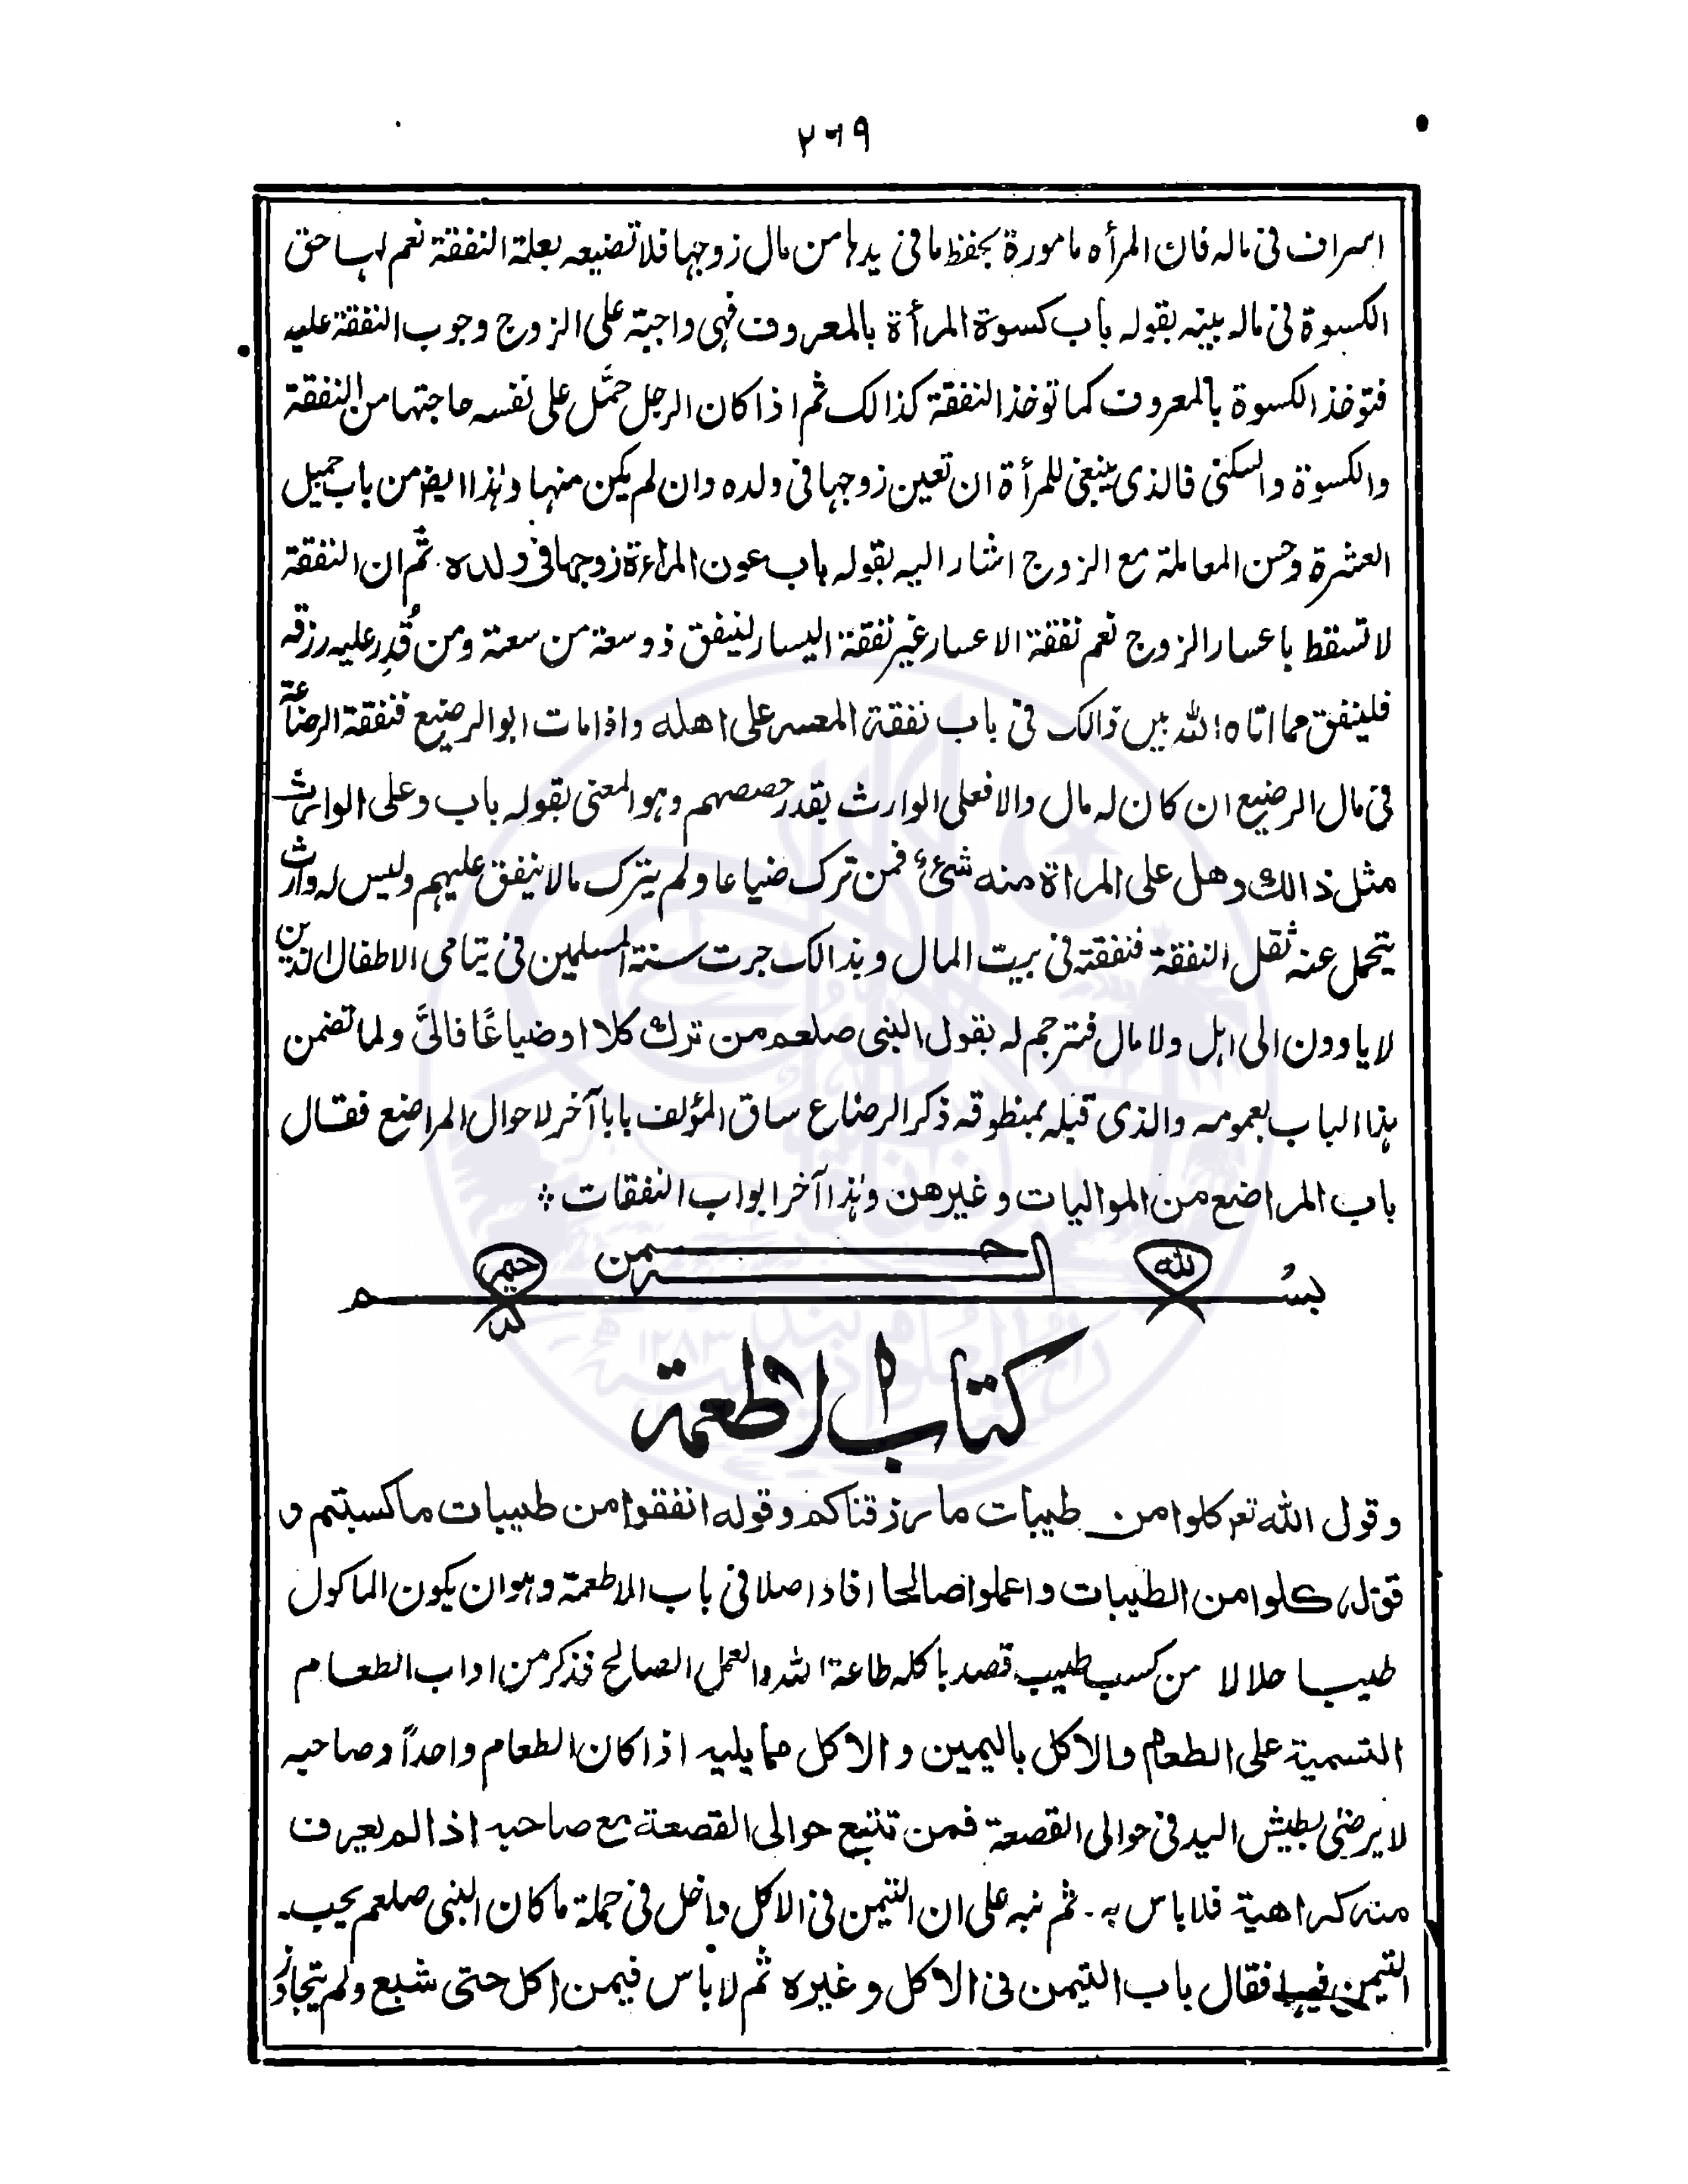 ٢٦٩
اسراف فی ماله فان المرأه مامورة بحفظ مافی يدها من مال زوجها فلا تضيعه بعلة النفقة نعم لها حق
الكسوة فی ماله بينه بقوله باب كسوة المرأة بالمعروف فهی واجبة علی الزوج وجوب النفقة عليه
فتوخذ الكسوة بالمعروف كما توخذ النفقة كذالك ثم اذا كان الرجل حمَّل علی نفسه حاجتها من النفقة
والكسوة والسكنی فالذی ينبغی للمرأة ان تعين زوجها فی ولده وان لم يكن منها وهٰذا ايضا من باب جميل
العشرة وحسن المعاملة مع الزوج اشار اليه بقوله باب عون المراءة زوجها فی ولده. ثم ان النفقة
لا تسقط باعسار الزوج نعم نفقة الاعسار غير نفقة اليسار لينفق ذو سعة من سعة ومن قُدِر عليه رزقه
فلينفق مما اتاه الله بين ذالك فی باب نفقة المعسر علی اهله واذا مات ابو الرضيع فنفقة الرضاعة
فی مال الرضيع ان كان له مال والا فعلی الوارث بقدر حصصهم وهو المعنی بقوله باب وعلی الوارث
مثل ذالك وهل علی المراة منه شئ فمن ترك ضياعا ولم يترك مالا ينفق عليهم وليس له وارث
يتحمل عنه ثقل النفقة فنفقته فی بيت المال وبذالك جرت سنة المسلمين فی يتامی الاطفال الذين
لا ياوون الی اهل ولا مال فترجم له بقول النبی صلعم من ترك كلا او ضياعًا فالیَّ ولما تضمن
هذا الباب بعمومه والذی قبله بمنطوقه ذكر الرضاع ساق المؤلف بابا آخر لاحوال المراضع فقال
باب المراضع من المواليات وغيرهن وهٰذا آخر ابواب النفقات ؞
بسم الله الرحمن الرحيم
كتاب الاطعمة
وقول الله تعم كلوا من طيبات ما رزقناكم وقوله انفقوا من طيبات ما كسبتم و
قوله كلوا من الطيبات واعملوا صالحا افاد اصلا فی باب الاطعمة وهو ان يكون الماكول
طيبا حلالا من كسب طيب قصد باكله طاعة الله والعمل الصالح فذكر من اداب الطعام
التسمية علی الطعام والاكل باليمين والاكل مما يليه اذا كان الطعام واحداً وصاحبه
لا يرضیٰ بطيش اليد فی حوالی القصعة فمن تتبع حوالی القصعة مع صاحبه اذا لم يعرف
منه كراهية فلا باس به۔ ثم نبه علی ان التيمن فی الاكل داخل فی جملة ما كان النبی صلعم يحب
التيمن فيها فقال باب التيمن فی الاكل وغيره ثم لا باس فيمن اكل حتی شبع ولم يتجاوز